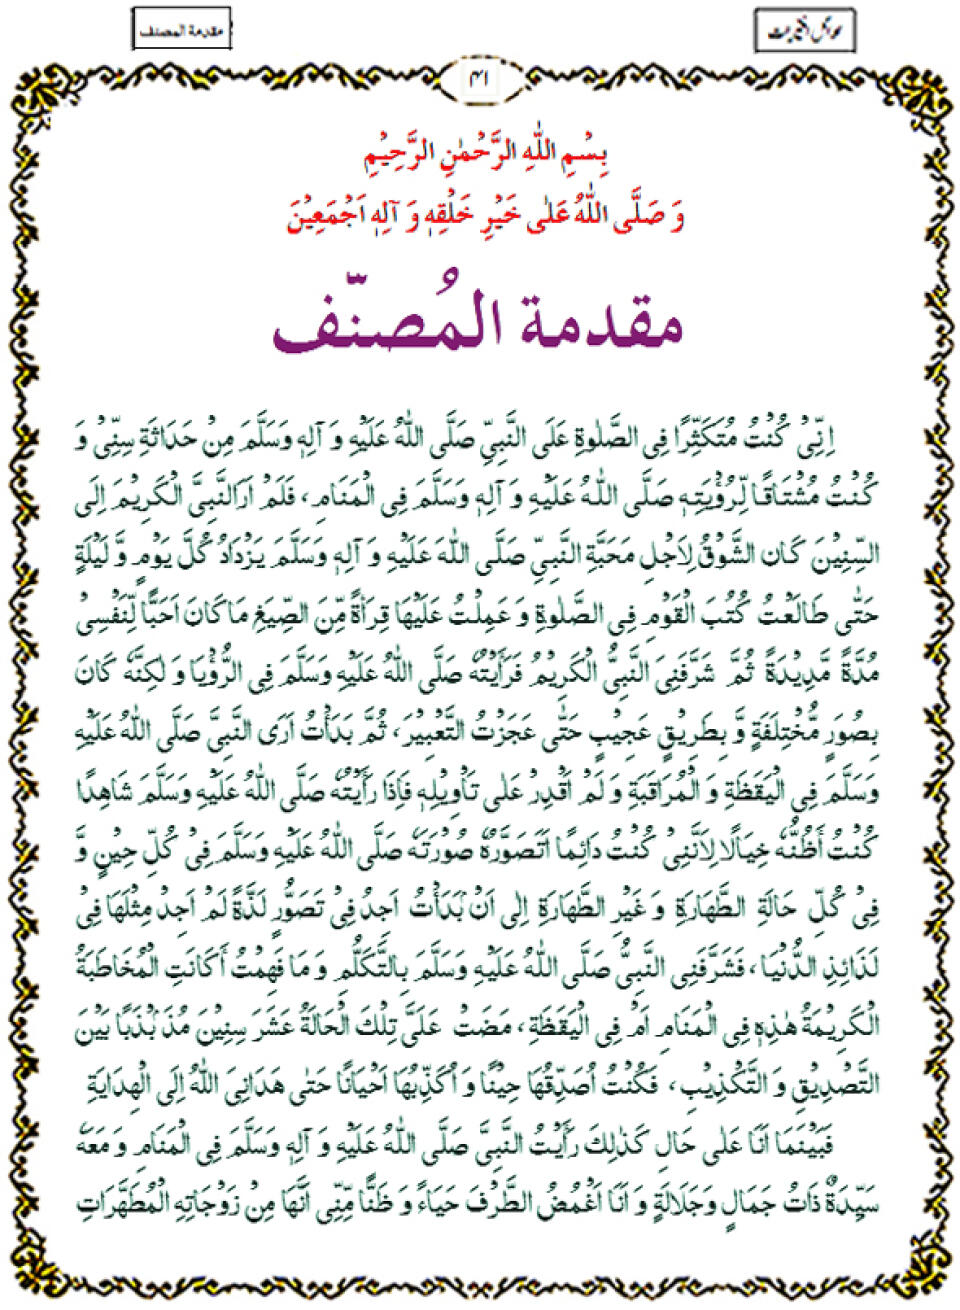 مقدمة المصنف
۴۱
بِسْمِ اللّٰهِ الرَّحْمٰنِ الرَّحِيْمِ
وَ صَلَّى اللّٰهُ عَلٰى خَيْرِ خَلْقِهٖ وَ آلِهٖ اَجْمَعِيْنَ
مقدمة المُصنّف
اِنِّيْ كُنْتُ مُتَكَثِّرًا فِي الصَّلٰوةِ عَلَى النَّبِيِّ صَلَّى اللّٰهُ عَلَيْهِ وَ آلِهٖ وَسَلَّمَ مِنْ حَدَاثَةِ سِنِّيْ وَ
كُنْتُ مُشْتَاقًا لِّرُؤْيَتِهٖ صَلَّى اللّٰهُ عَلَيْهِ وَ آلِهٖ وَسَلَّمَ فِي الْمَنَامِ، فَلَمْ اَرَالنَّبِيَّ الْكَرِيْمَ اِلَى
السِّنِيْنَ كَانَ الشَّوْقُ لِاَجْلِ مَحَبَّةِ النَّبِيِّ صَلَّى اللّٰهَ عَلَيْهِ وَ آلِهٖ وَسَلَّمَ يَزْدَادُ كُلَّ يَوْمٍ وَّ لَيْلَةٍ
حَتّٰى طَالَعْتُ كُتُبَ الْقَوْمِ فِي الصَّلٰوةِ وَ عَمِلْتُ عَلَيْهَا قِرَاةً مِّنَ الصِّيَغِ مَا كَانَ اَحَبًّا لِّنَفْسِيْ
مُدَّةً مَّدِيْدَةً ثُمَّ شَرَّفَنِيَ النَّبِيُّ الْكَرِيْمُ فَرَأَيْتُهٗ صَلَّى اللّٰهُ عَلَيْهِ وَسَلَّمَ فِي الرُّؤْيَا وَ لٰكِنَّهٗ كَانَ
بِصُوَرٍ مُّخْتَلِفَةٍ وَّ بِطَرِيْقٍ عَجِيْبٍ حَتّٰى عَجَزْتُ التَّعْبِيْرَ، ثُمَّ بَدَأْتُ اَرَى النَّبِيَّ صَلَّى اللّٰهُ عَلَيْهِ
وَسَلَّمَ فِي الْيَقَظَةِ وَ الْمُرَاقَبَةِ وَ لَمْ اَقْدِرْ عَلٰى تَاْوِيْلِهٖ فَاِذَا رَأَيْتُهٗ صَلَّى اللّٰهُ عَلَيْهِ وَسَلَّمَ شَاهِدًا
كُنْتُ اَظُنُّهٗ خِيَالًا لِاَنَّنِيْ كُنْتُ دَائِمًا اَتَصَوَّرُهٗ صُوْرَتَهٗ صَلَّى اللّٰهُ عَلَيْهِ وَسَلَّمَ فِيْ كُلِّ حِيْنٍ وَّ
فِيْ كُلِّ حَالَةِ الطَّهَارَةِ وَ غَيْرِ الطَّهَارَةِ اِلٰى اَنْ بَدَأْتُ اَجِدُ فِيْ تَصَوُّرٍ لَذَّةً لَمْ اَجِدْ مِثْلَهَا فِيْ
لَذَائِذِ الدُّنْيَا، فَشَرَّفَنِي النَّبِيُّ صَلَّى اللّٰهُ عَلَيْهِ وَسَلَّمَ بِالتَّكَلُّمِ وَ مَا فَهِمْتُ أَكَانَتِ الْمُخَاطَبَةُ
الْكَرِيْمَةُ هٰذِهٖ فِي الْمَنَامِ اَمْ فِي الْيَقَظَةِ، مَضَتْ عَلَيَّ تِلْكَ الْحَالَةُ عَشَرَ سِنِيْنَ مُذَبْذَبًا بَيْنَ
التَّصْدِيْقِ وَ التَّكْذِيْبِ، فَكُنْتُ اُصَدِّقُهَا حِيْنًا وَ اُكَذِّبُهَا اَحْيَانًا حَتٰى هَدَانِيَ اللّٰهُ اِلَى الْهِدَايَةِ
فَبَيْنَمَا اَنَا عَلٰى حَالٍ كَذٰلِكَ رَأَيْتُ النَّبِيَّ صَلَّى اللّٰهُ عَلَيْهِ وَ آلِهٖ وَسَلَّمَ فِي الْمَنَامِ وَ مَعَهٗ
سَيِّدَةٌ ذَاتُ جَمَالٍ وَجَلَالَةٍ وَ اَنَا اَغْمُضُ الطَّرْفَ حَيَاءً وَ ظَنًّا مِّنِّيْ اَنَّهَا مِنْ زَوْجَاتِهِ الْمُطَهَّرَاتِ